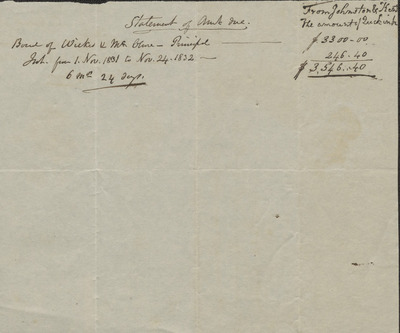 Statement of Amt due.
From Johnston &
The amount of
Bond of Wicks & Mc Clure — Principal —
$ 3300-00
Int. from 1. Nov. 1831 to Nov. 24. 1832 —
246-40
$ 3,546-40
6 mo 24 days.